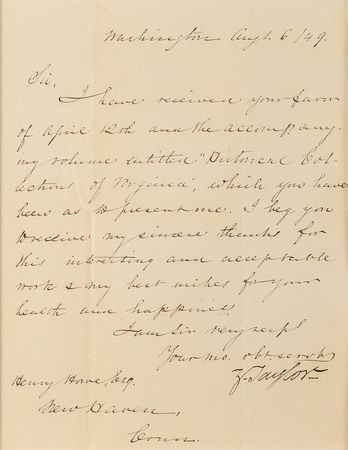 Washington Augt. 6/49.
Sir,
I have received your favor
of April 12th and the accompany-
ing volume entitled "Historical Col-
lections of Virginia", which you have
been so as to present me. I beg you
to receive my sincere thanks for
this interesting and acceptable
work & my best wishes for your
health and happiness
I am Sir very respt
Your mo. obt. servt
Z. Taylor
Henry Howe Esq.
New Haven,
Conn.